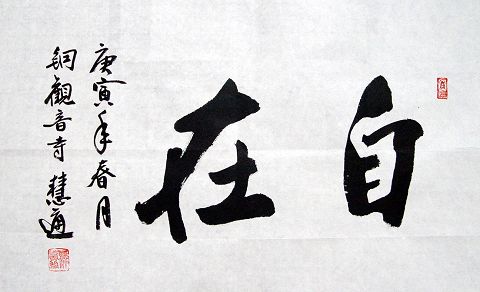 自在
庚寅年春月
铜觀音寺 慧通